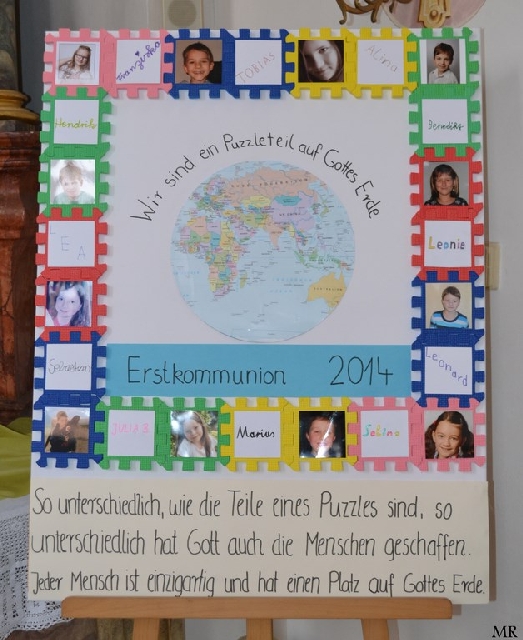 Franziska
TOBIAS
Alina
Hendrik
Benedikt
Wir sind ein Puzzleteil auf Gottes Erde
LEA
Leonie
Sebastian
Leonard
Erstkommunion 2014
Marius
Sabine
So unterschiedlich, wie die Teile eines Puzzles sind, so
unterschiedlich hat Gott auch die Menschen geschaffen.
Jeder Mensch ist einzigartig und hat einen Platz auf Gottes Erde.
MR